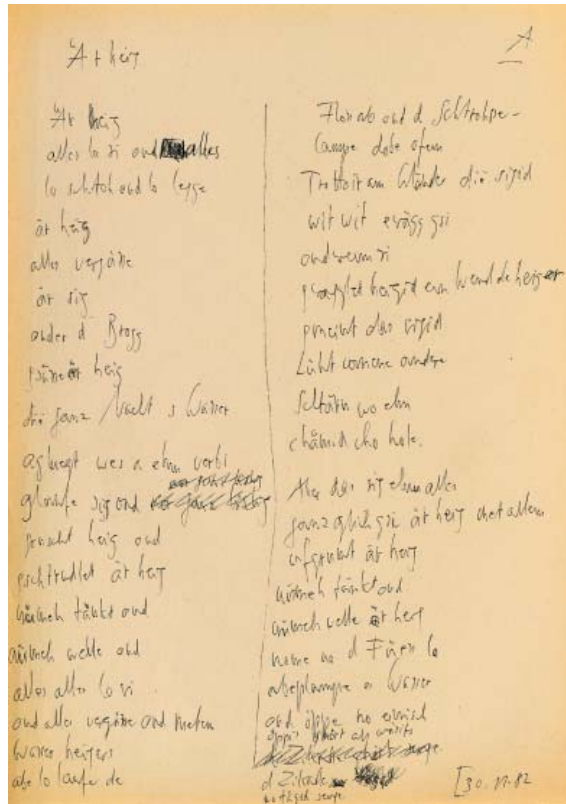 Är heig
A
Är heig
alles lo si ond alles
lo schtoh ond lo legge
är heig
alles vergässe
är sig
onder d Brogg
är heig
die ganz Nacht s Wasser
agluegt wes a ehm verbi
gloffe sig ond
gruscht heig ond
gschtrudlet är heig
nüme tänkt ond
nüme welle ond
alles alles lo si
ond alles vergässe ond met em
Wasser heigers
abe lo laufe de
Floss ab ond d Schtrosse-
lampe dobe ofem
Trottoir am Gländer die sigid
wit wit ewägg gsi
ond wenn si
heigid em Wend de heig er
gmeint das sigid
Liecht vomene andere
Schtärn wo ehn
chämid cho hole.
Aber das sig ehm alles
ganz glich gsi är heig met allem
ufgruumt är heig
nüme tänkt ond
nüme welle är heig
nome no d Füess lo
abeplampe is Wasser
ond öppe no einisch
d Zilande
[30. 11. 82